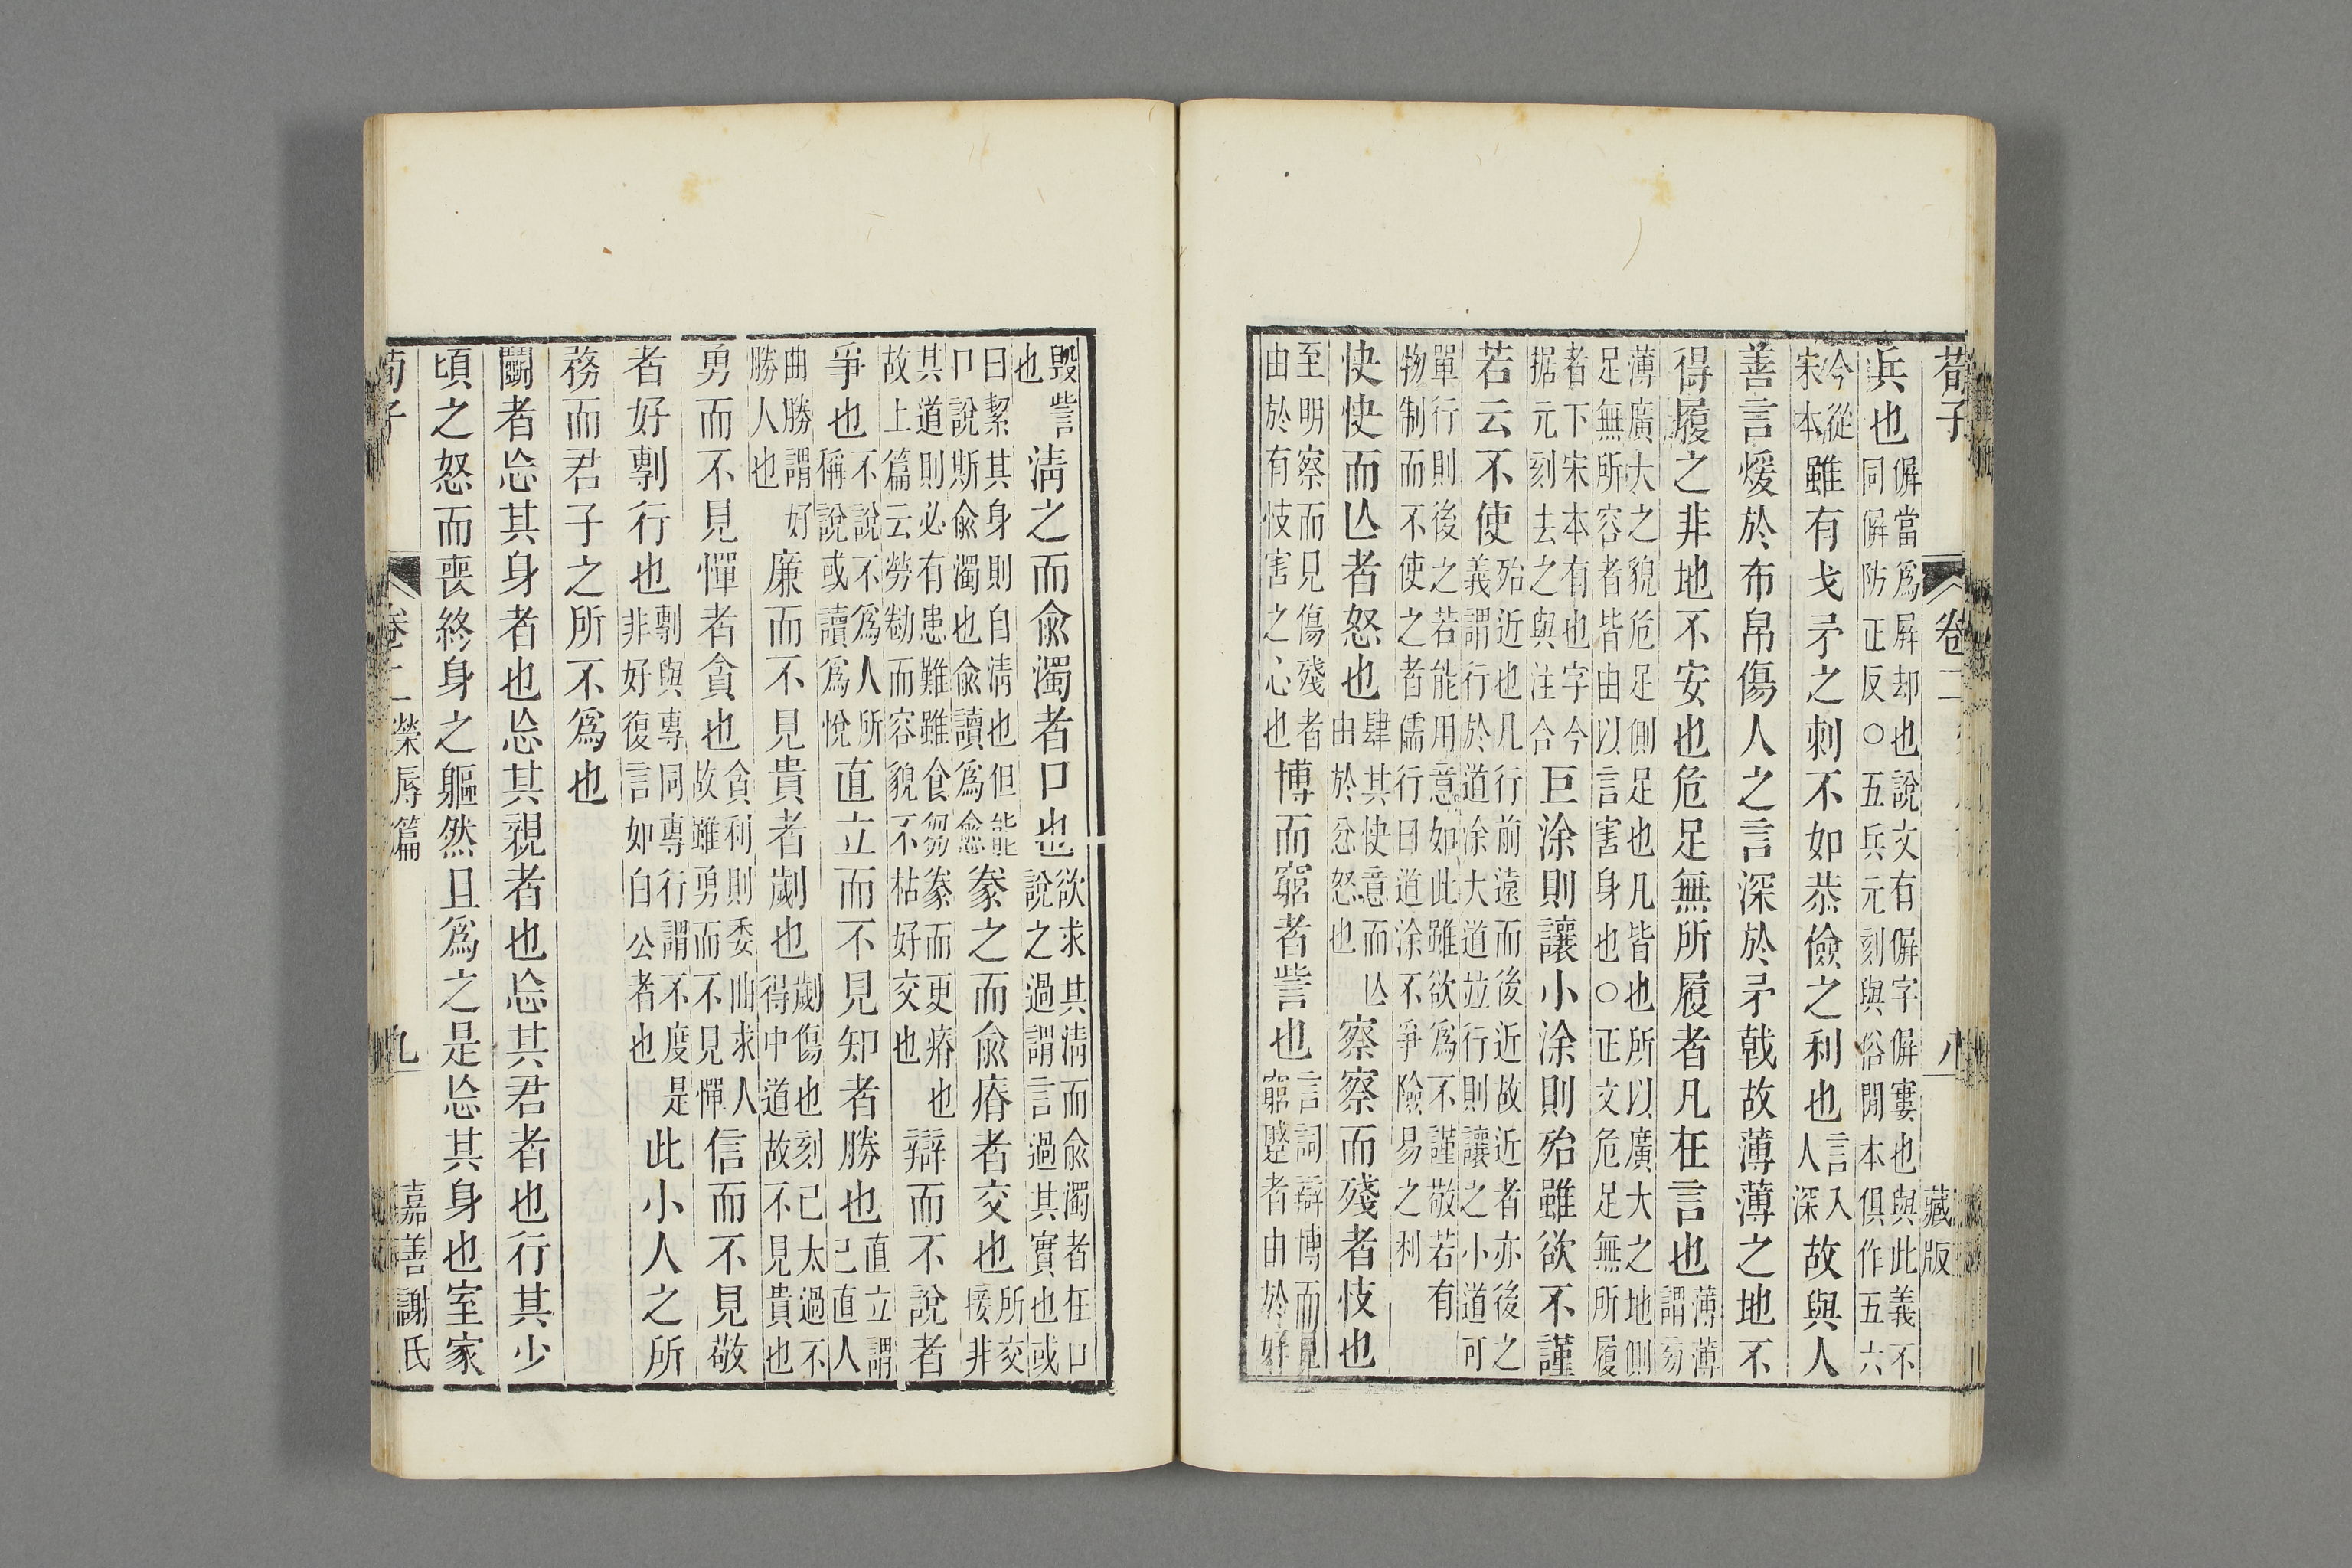 荀子 卷二 八 藏版
兵也偋當爲屏却也說文有偋字偋寠也與此義不
同偋防正反○五兵元刻與俗閒本俱作五六
今從
宋本雖有戈矛之刺不如恭儉之利也言入
人深故與人
善言煖於布帛傷人之言深於矛戟故薄薄之地不
得履之非地不安也危足無所履者凡在言也薄薄
謂旁
薄廣大之貌危足側足也凡皆也所以廣大之地側
足無所容者皆由以言害身也○正文危足無所履
者下宋本有也字今
据元刻去之與注合巨涂則讓小涂則殆雖欲不謹
若云不使殆近也凡行前遠而後近故近者亦後之
義謂行於道涂大道並行則讓之小道可
單行則後之若能用意如此雖欲爲不謹敬若有
物制而不使之者儒行曰道涂不爭險易之利
快快而亾者怒也肆其快意而亾
由於忿怒也察察而殘者忮也
至明察而見傷殘者
由於有忮害之心也博而窮者訾也言詞辯博而見
窮蹙者由於好
毀訾
也淸之而兪濁者口也欲求其淸而兪濁者在口
說之過謂言過其實也或
曰絜其身則自淸也但能
口說斯兪濁也兪讀爲愈豢之而兪瘠者交也所交
接非
其道則必有患難雖食芻豢而更瘠也
故上篇云勞勌而容貌不枯好交也辯而不說者
爭也不說不爲人所
稱說或讀爲悅直立而不見知者勝也直立謂
己直人
曲勝謂好
勝人也廉而不見貴者劌也劌傷也刻己太過不
得中道故不見貴也
勇而不見憚者貪也貪利則委曲求人
故雖勇而不見憚信而不見敬
者好剸行也剸與專同專行謂不度是
非好復言如白公者也此小人之所
務而君子之所不爲也
鬭者忘其身者也忘其親者也忘其君者也行其少
頃之怒而喪終身之軀然且爲之是忘其身也室家
荀子 卷二 榮辱篇 九 嘉善謝氏